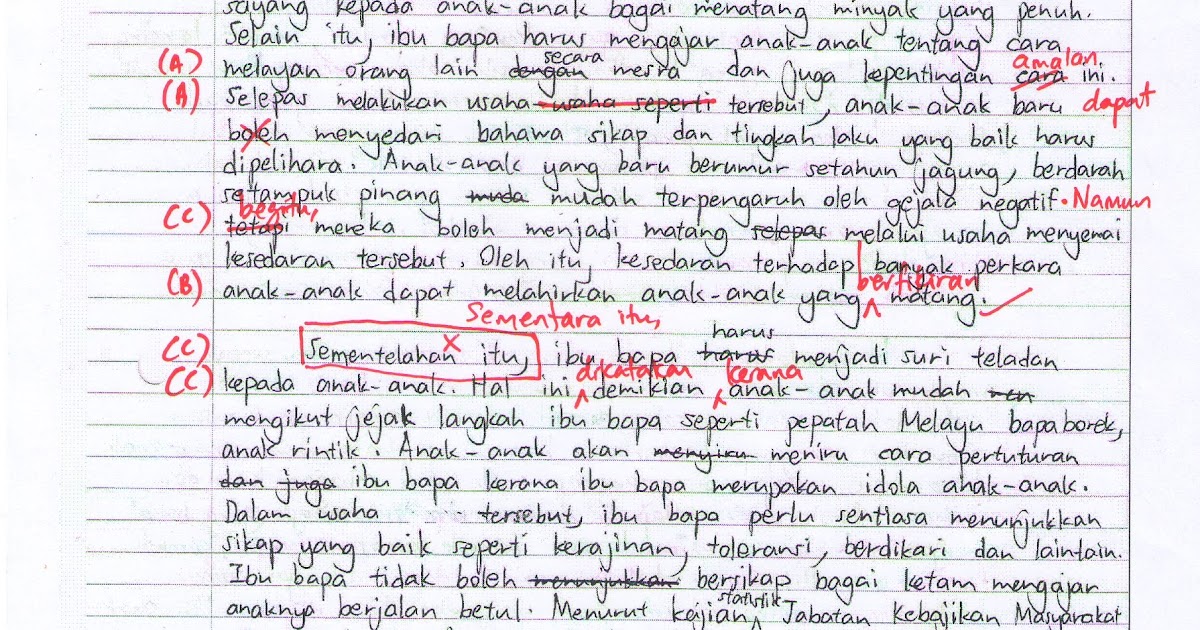 sayang kepada anak-anak bagai menatang minyak yang penuh.
Selain itu, ibu bapa harus mengajar anak-anak tentang cara
secara amalan.
(A) melayan orang lain dengan mesra dan juga kepentingan cara ini.
(A) Selepas melakukan usaha-usaha seperti tersebut, anak-anak baru dapat
boleh menyedari bahawa sikap dan tingkah laku yang baik harus
dipelihara. Anak-anak yang baru berumur setahun jagung, berdarah
setampuk pinang muda mudah terpengaruh oleh gejala negatif. Namun
begitu,
(C) tetapi mereka boleh menjadi matang selepas melalui usaha menyemai
kesedaran tersebut. Oleh itu, kesedaran terhadap banyak perkara
berfikiran
(B) anak-anak dapat melahirkan anak-anak yang matang.
Sementara itu, harus
(C) Sementelahan itu, ibu bapa harus menjadi suri teladan
dikatakan kerana
(C) kepada anak-anak. Hal ini demikian anak-anak mudah men
mengikut jejak langkah ibu bapa seperti pepatah Melayu bapa borek,
anak rintik. Anak-anak akan menyiru meniru cara pertuturan
dan juga ibu bapa kerana ibu bapa merupakan idola anak-anak.
Dalam usaha tersebut, ibu bapa perlu sentiasa menunjukkan
sikap yang baik seperti kerajinan, toleransi, berdikari dan lain-lain.
Ibu bapa tidak boleh menunjukkan bersikap bagai ketam mengajar
statistik
anaknya berjalan betul. Menurut kajian Jabatan Kebajikan Masyarakat